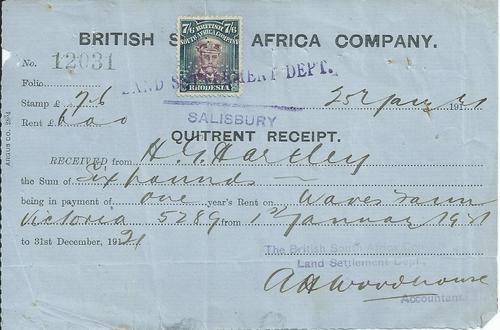 BRITISH S AFRICA COMPANY.
7/6 7/6
BRITISH
SOUTH AFRICA COMPANY
RHODESIA
No. 12031
LAND SETTLEMENT DEPT.
SALISBURY
Folio
Stamp £ 7.6
25 191
Rent £ 6.0.0
ARGUS CO.
QUITRENT RECEIPT.
RECEIVED from H. G. Hartley
the Sum of Six pounds
being in payment of one year's Rent on Farm
Victoria 5289 from 1st January 1921
to 31st December, 1921
The British South Africa
Land Settlement Dept.
AH Woodhouse
Accountant